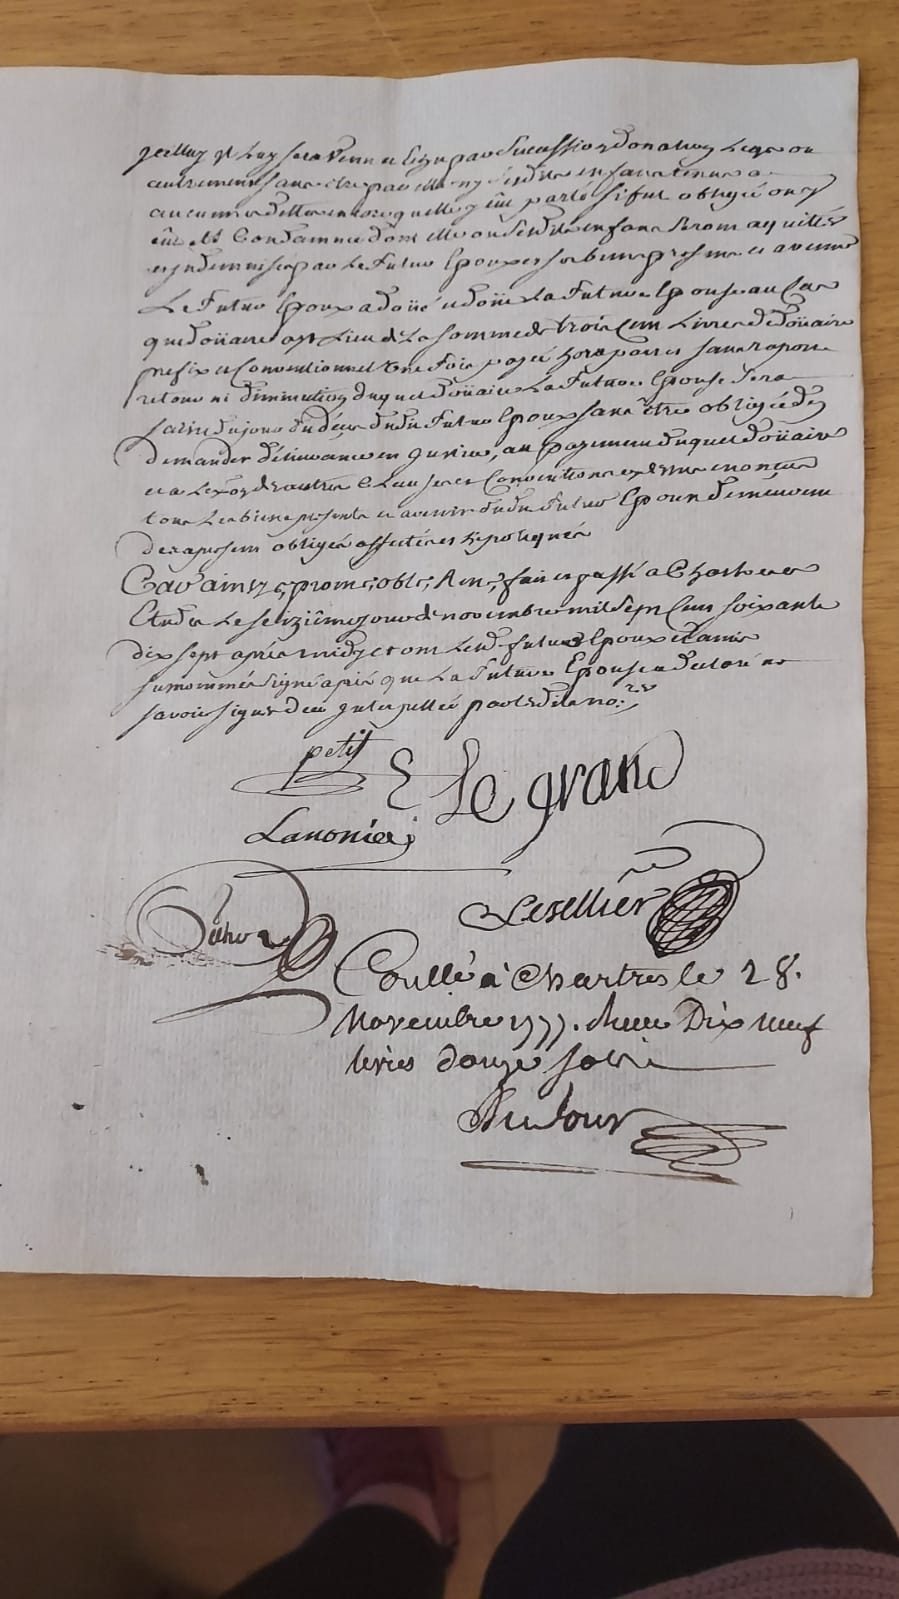 icelluy et luy sera venu et echu par succession donation Legs ou
autrement sans etre par elle ny sesdits enfans tenus a
aucunnes dettes encore quelle y eut parlé s'i fut obligée ou y
eut été Condamnée dont elle ou sesdits enfans seront aquittés
et indemnisés par Le futur Epoux et sur ses biens presens et avenir
Le futur Epoux a doüé et doüe La future Epouse au Cas
que doüaire ayt Lieu de La somme de trois Cent Livres de doüaire
prefix et Conventionnel une fois payé hors part et sans raport
retour ni diminution duquel doüaire La future Epouse sera
saisie du jour du décès dudit futur Epoux sans être obligée d'en
demander délivrance en justice, au payement duquel doüaire
et a L'exon des autres Clauses et Conventions cy dessus enoncées
tous Les biens presents et avenir dudit futur Epoux demeurent
des a present obligés affectés et hypotequés
Car ainsy &c, prome; obl; Ren; fait et passé a Chartres
Etude Le seizième jour de novembre mil sept Cent soixante
dix sept après midy et ont Ledt futur Epoux et amis
susnommés signé après que La future Epouse a declaré ne
savoir signer de ce interpellée par lesdits nores
petit
E Le grand
Lanonier
Lesellier
Coullé à Chartres le 28.
Novembre 1777. Receu Dix neuf
livres douze sols